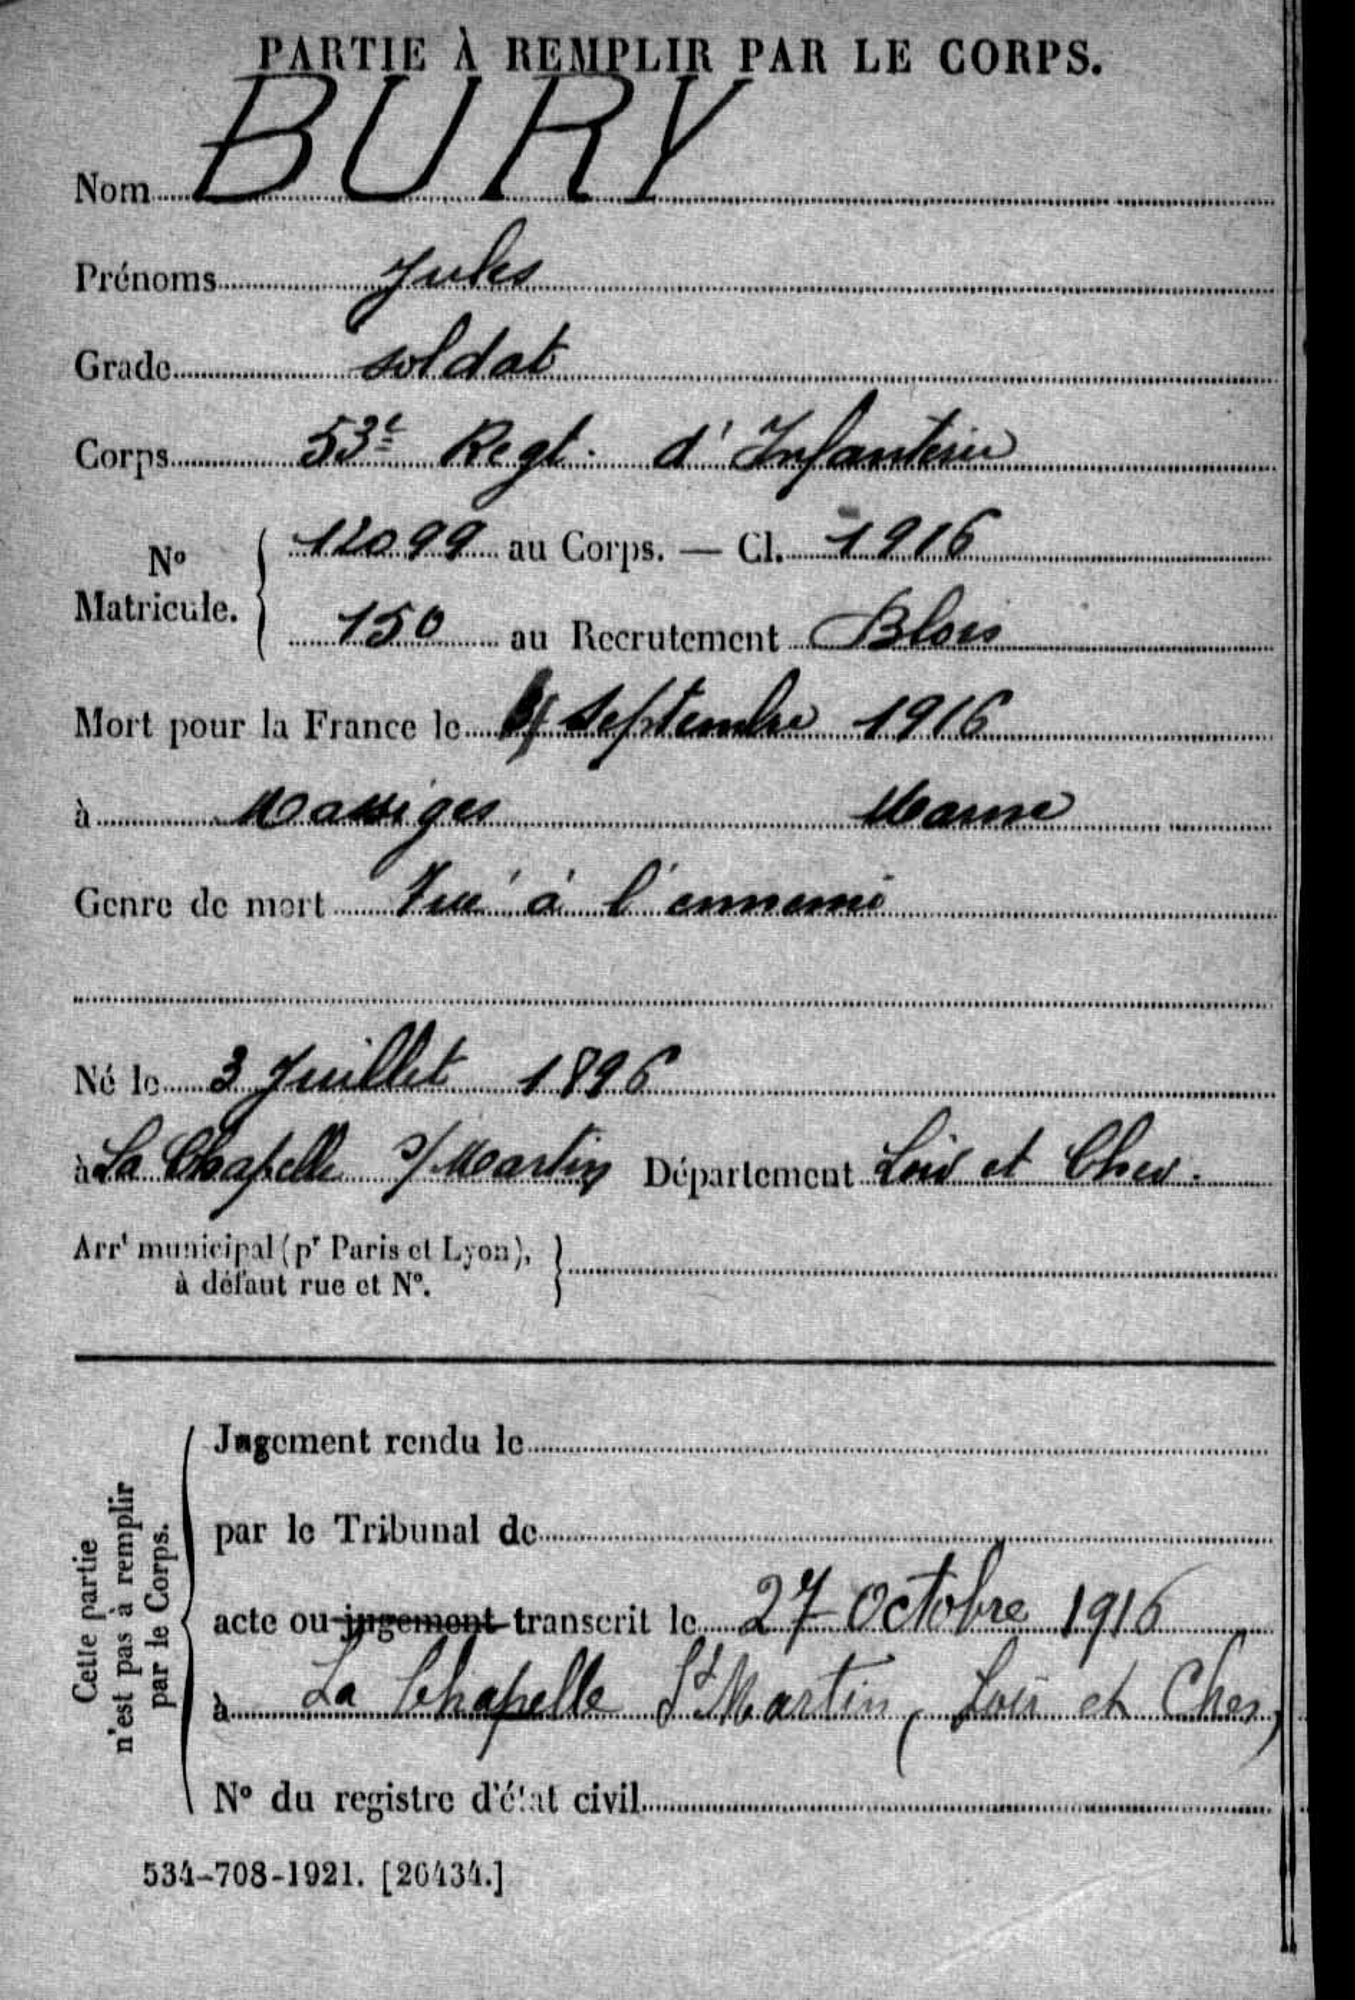 PARTIE À REMPLIR PAR LE CORPS.
Nom BURY
Prénoms Jules
Grade soldat
Corps 53e Regt. d'Infanterie
No Matricule. { 12099 au Corps. — Cl. 1916
150 au Recrutement Blois
Mort pour la France le septembre 1916
à Massiges Marne
Genre de mort Tué à l'ennemi
Né le 3 Juillet 1896
à La Chapelle s/ Martin Département Loir et Cher.
Arrt municipal (pr Paris et Lyon), }
à défaut rue et No.
Cette partie
n'est pas à remplir
par le Corps.
Jugement rendu le
par le Tribunal de
acte ou jugement transcrit le 27 Octobre 1916
à La Chapelle St Martin (Loir et Cher)
No du registre d'état civil
534-708-1921. [26434.]